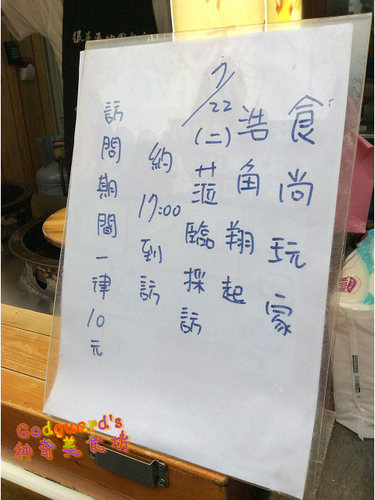 食尚玩家
浩角翔起
7/22(二)蒞臨採訪
約17:00到訪
訪問期間一律10元
神奇美食坊